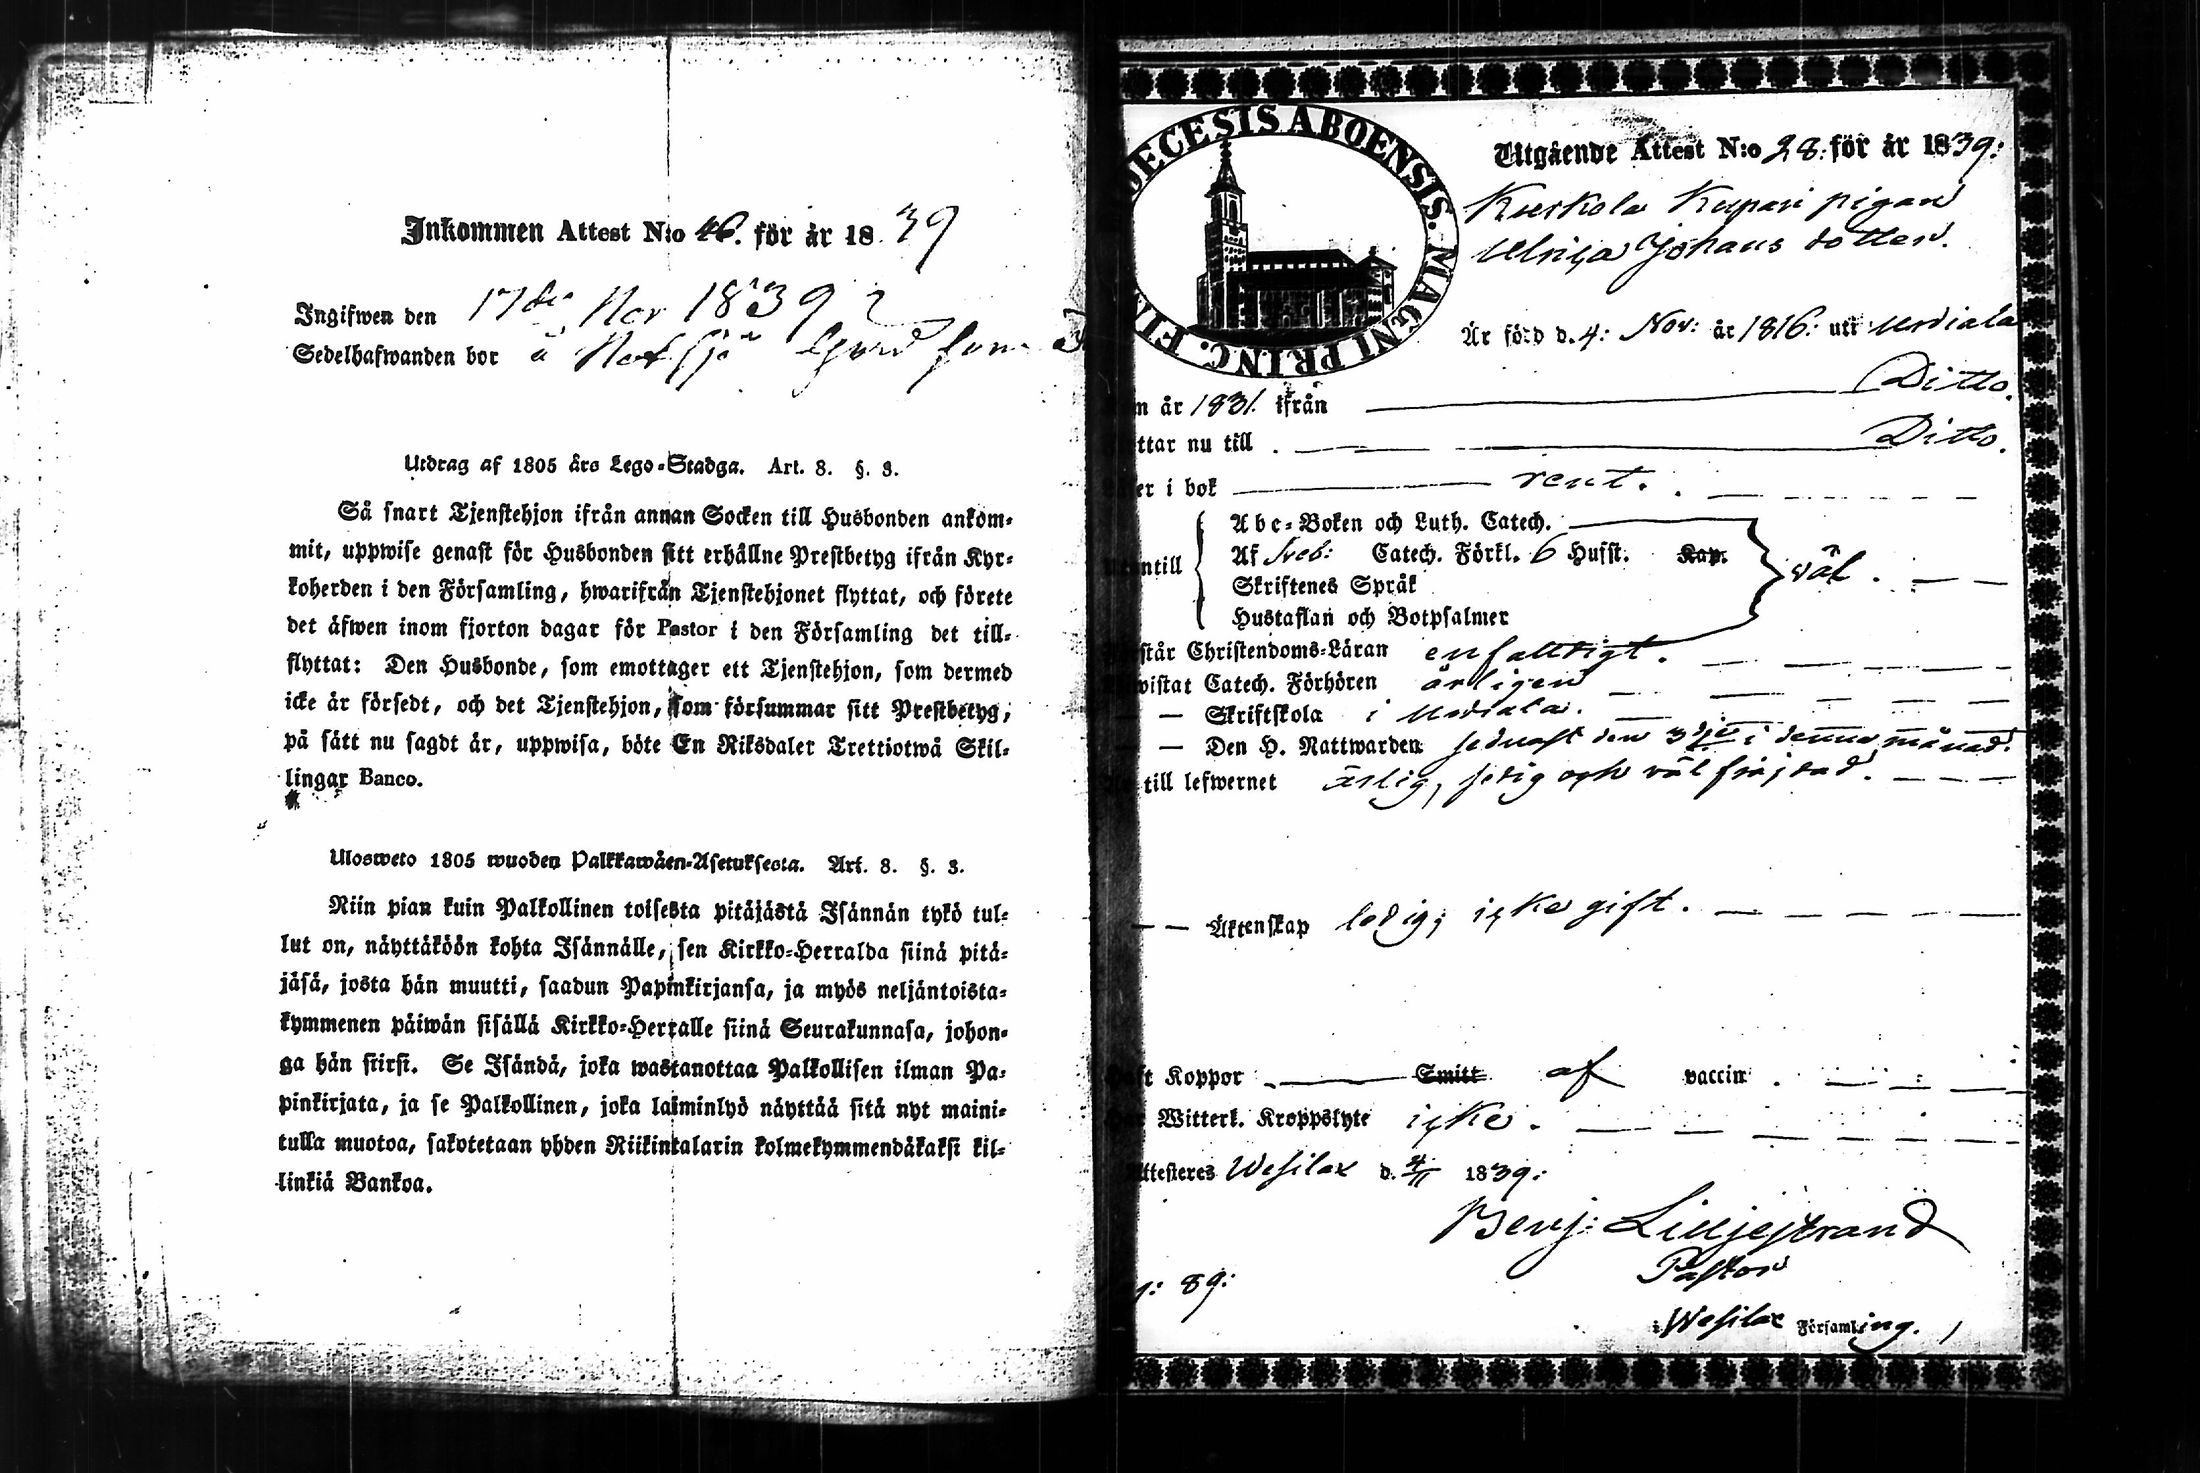 Inkommen Attest N:o 46. för år 1839
Ingifwen den 17de Nov 1839
Sedelhafwanden bor å
Utdrag af 1805 års Lego-Stadga. Art. 8. §. 3.
Så snart Tjenstehjon ifrån annan Socken till Husbonden ankom-
mit, uppwise genast för Husbonden sitt erhållne Prestbetyg ifrån Kyr-
koherden i den Församling, hwarifrån Tjenstehjonet flyttat, och förete
det äfwen inom fjorton dagar för Pastor i den Församling det till-
flyttat: Den Husbonde, som emottager ett Tjenstehjon, som dermed
icke är försedt, och det Tjenstehjon, som försummar sitt Prestbetyg,
på sätt nu sagdt är, uppwisa, böte En Riksdaler Trettiotwå Skil-
lingar Banco.
Ulosweto 1805 wuoden Palkkawäen-Asetuksesta. Art. 8. §. 3.
Niin pian kuin Palkollinen toisesta pitäjästä Isännän tykö tul-
lut on, näyttäköön kohta Isännälle, sen Kirkko-Herralda siinä pitä-
jäsä, josta hän muutti, saadun Papinkirjansa, ja myös neljäntoista-
kymmenen päiwän sisällä Kirkko-Herralle siinä Seurakunnasa, johon-
ga hän siirsi. Se Isändä, joka wastanottaa Palkollisen ilman Pa-
pinkirjata, ja se Palkollinen, joka laiminlyö näyttää sitä nyt maini-
tulla muotoa, sakotetaan yhden Riikintalarin kolmekymmendäkaksi kil-
linkiä Bankoa.
DECESIS ABOENSIS. MAGNI PRINC. FIN
Utgående Attest N:o 28. för år 1839:
Kuskola Kupari pigan
Ulrica Johans dotter.
Är född d. 4: Nov: år 1816: uti Urdiala
m år 1831. ifrån Ditto.
ttar nu till Ditto.
er i bok rent.
Abc-Boken och Luth. Catech.
Af Sveb: Catech. Förkl. 6 Husst. Kap.
ntill väl.
Skriftenes Språk
Hustaflan och Botpsalmer
står Christendoms-Läran enfalldigt.
wistat Catech. Förhören årligen
— — Skriftskola i Urdiala.
— — Den H. Nattwarden sednast den 3dje i denna månad.
till lefwernet ärlig, sedig och väl frejdad.
— — Äktenskap ledig, icke gift.
ft Koppor Smitt af vaccin
Witterl. Kroppslyte icke.
ttesteres Wesilax d. 4/11 1839:
Benj: Lilljestrand
Pastor
i Wesilax Församling.
: 89: